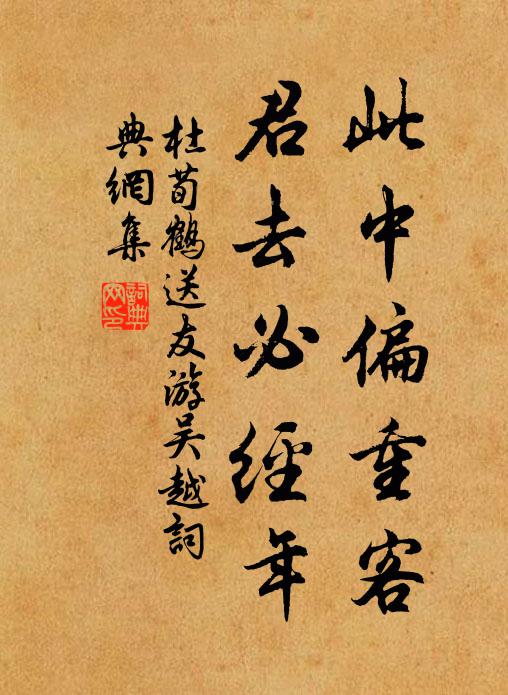 此中偏重客
君去必經年
杜荀鶴送友游吴越詞
典網集
詞典
网印